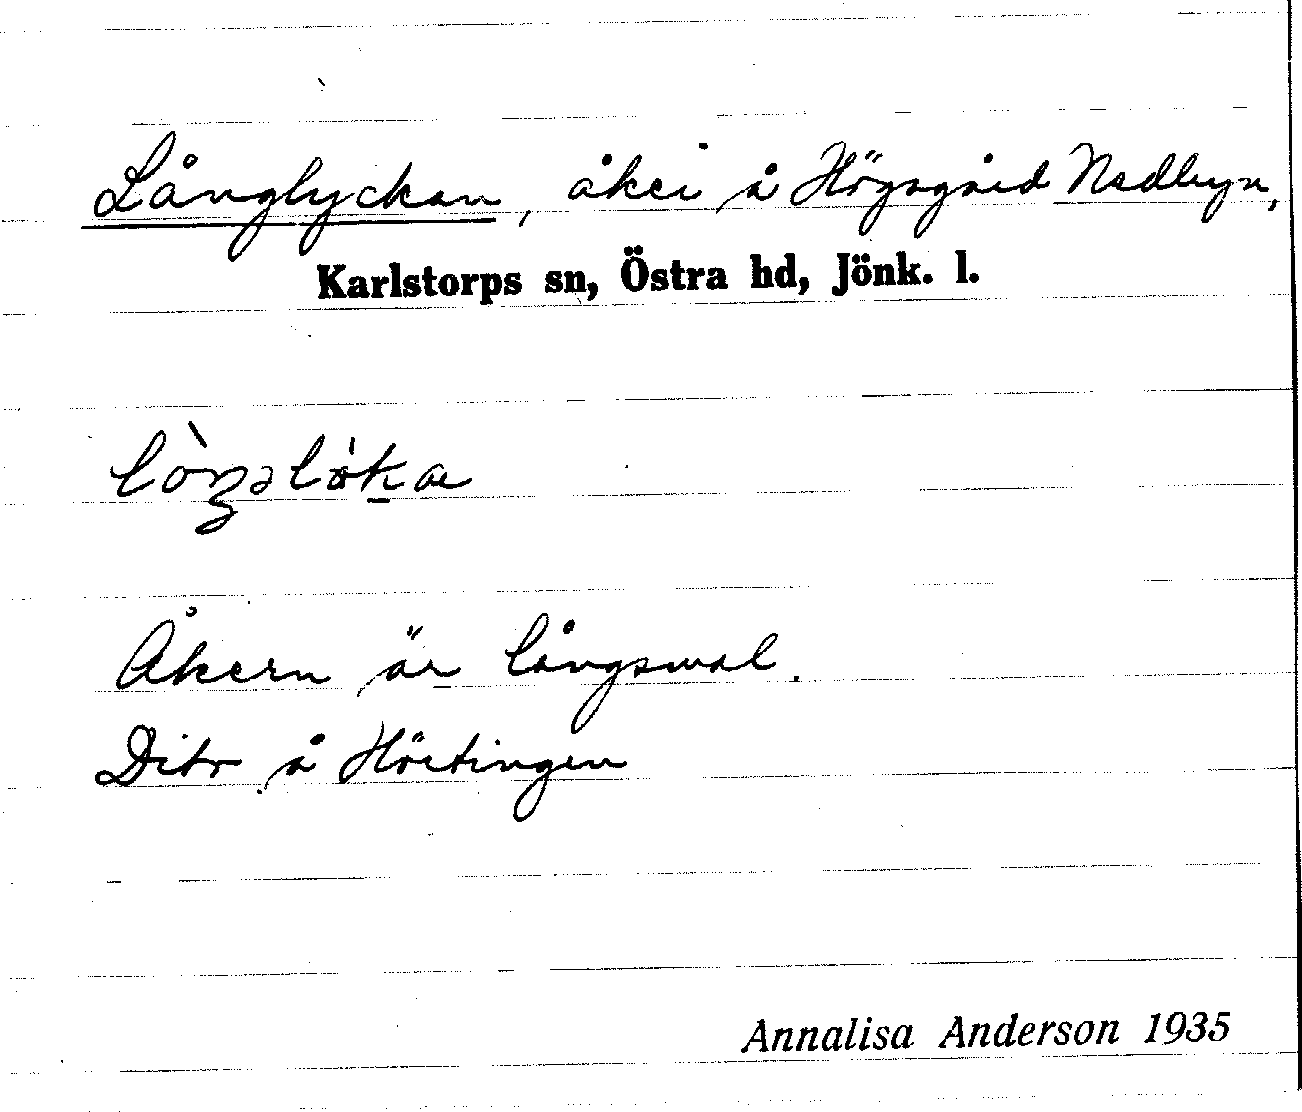 Långlyckan, åker å Högagärd Nedbyn,
Karlstorps sn, Östra hd, Jönk. l.
Åkern är långsmal.
Dito å Hörtingen
Annalisa Anderson 1935